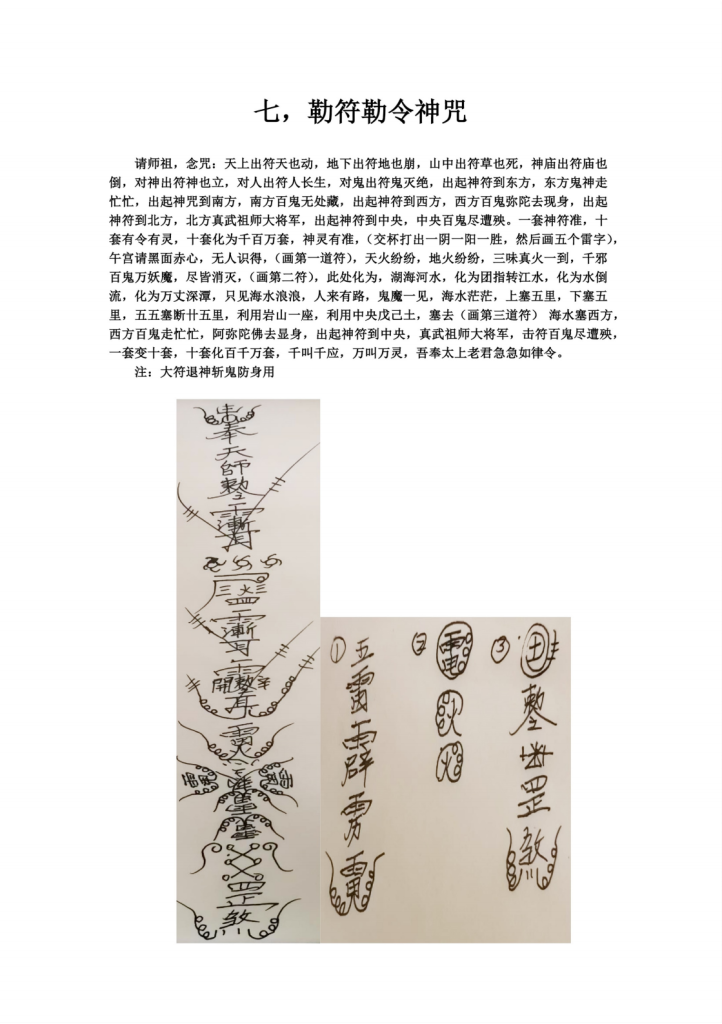 七，勒符勒令神咒
请师祖，念咒：天上出符天也动，地下出符地也崩，山中出符草也死，神庙出符庙也
倒，对神出符神也立，对人出符人长生，对鬼出符鬼灭绝，出起神符到东方，东方鬼神走
忙忙，出起神咒到南方，南方百鬼无处藏，出起神符到西方，西方百鬼弥陀去现身，出起
神符到北方，北方真武祖师大将军，出起神符到中央，中央百鬼尽遭殃。一套神符准，十
套有令有灵，十套化为千百万套，神灵有准，（交杯打出一阴一阳一胜，然后画五个雷字），
午宫请黑面赤心，无人识得，（画第一道符），天火纷纷，地火纷纷，三味真火一到，千邪
百鬼万妖魔，尽皆消灭，（画第二符），此处化为，湖海河水，化为团指转江水，化为水倒
流，化为万丈深潭，只见海水浪浪，人来有路，鬼魔一见，海水茫茫，上塞五里，下塞五
里，五五塞断廿五里，利用岩山一座，利用中央戊己土，塞去（画第三道符） 海水塞西方，
西方百鬼走忙忙，阿弥陀佛去显身，出起神符到中央，真武祖师大将军，击符百鬼尽遭殃，
一套变十套，十套化百千万套，千叫千应，万叫万灵，吾奉太上老君急急如律令。
注：大符退神斩鬼防身用
奉
天
師
敕
開
罡
煞
①
五
雷
霹
②
電
③
土
敕
罡
煞